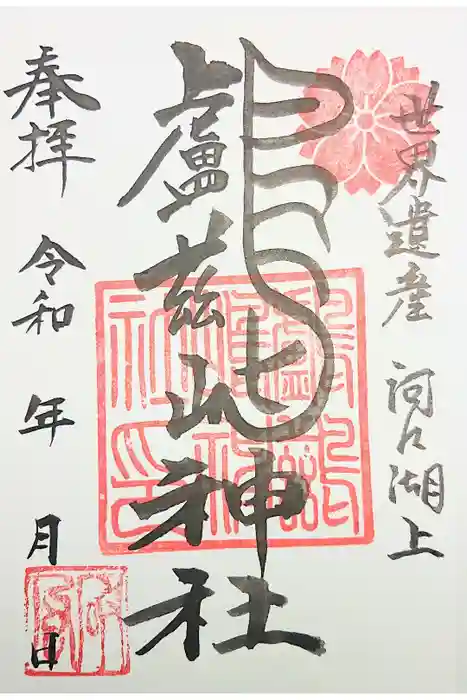 世界遺産 河口湖上
鸕鷀嶋神社
奉拝 令和 年 月 日